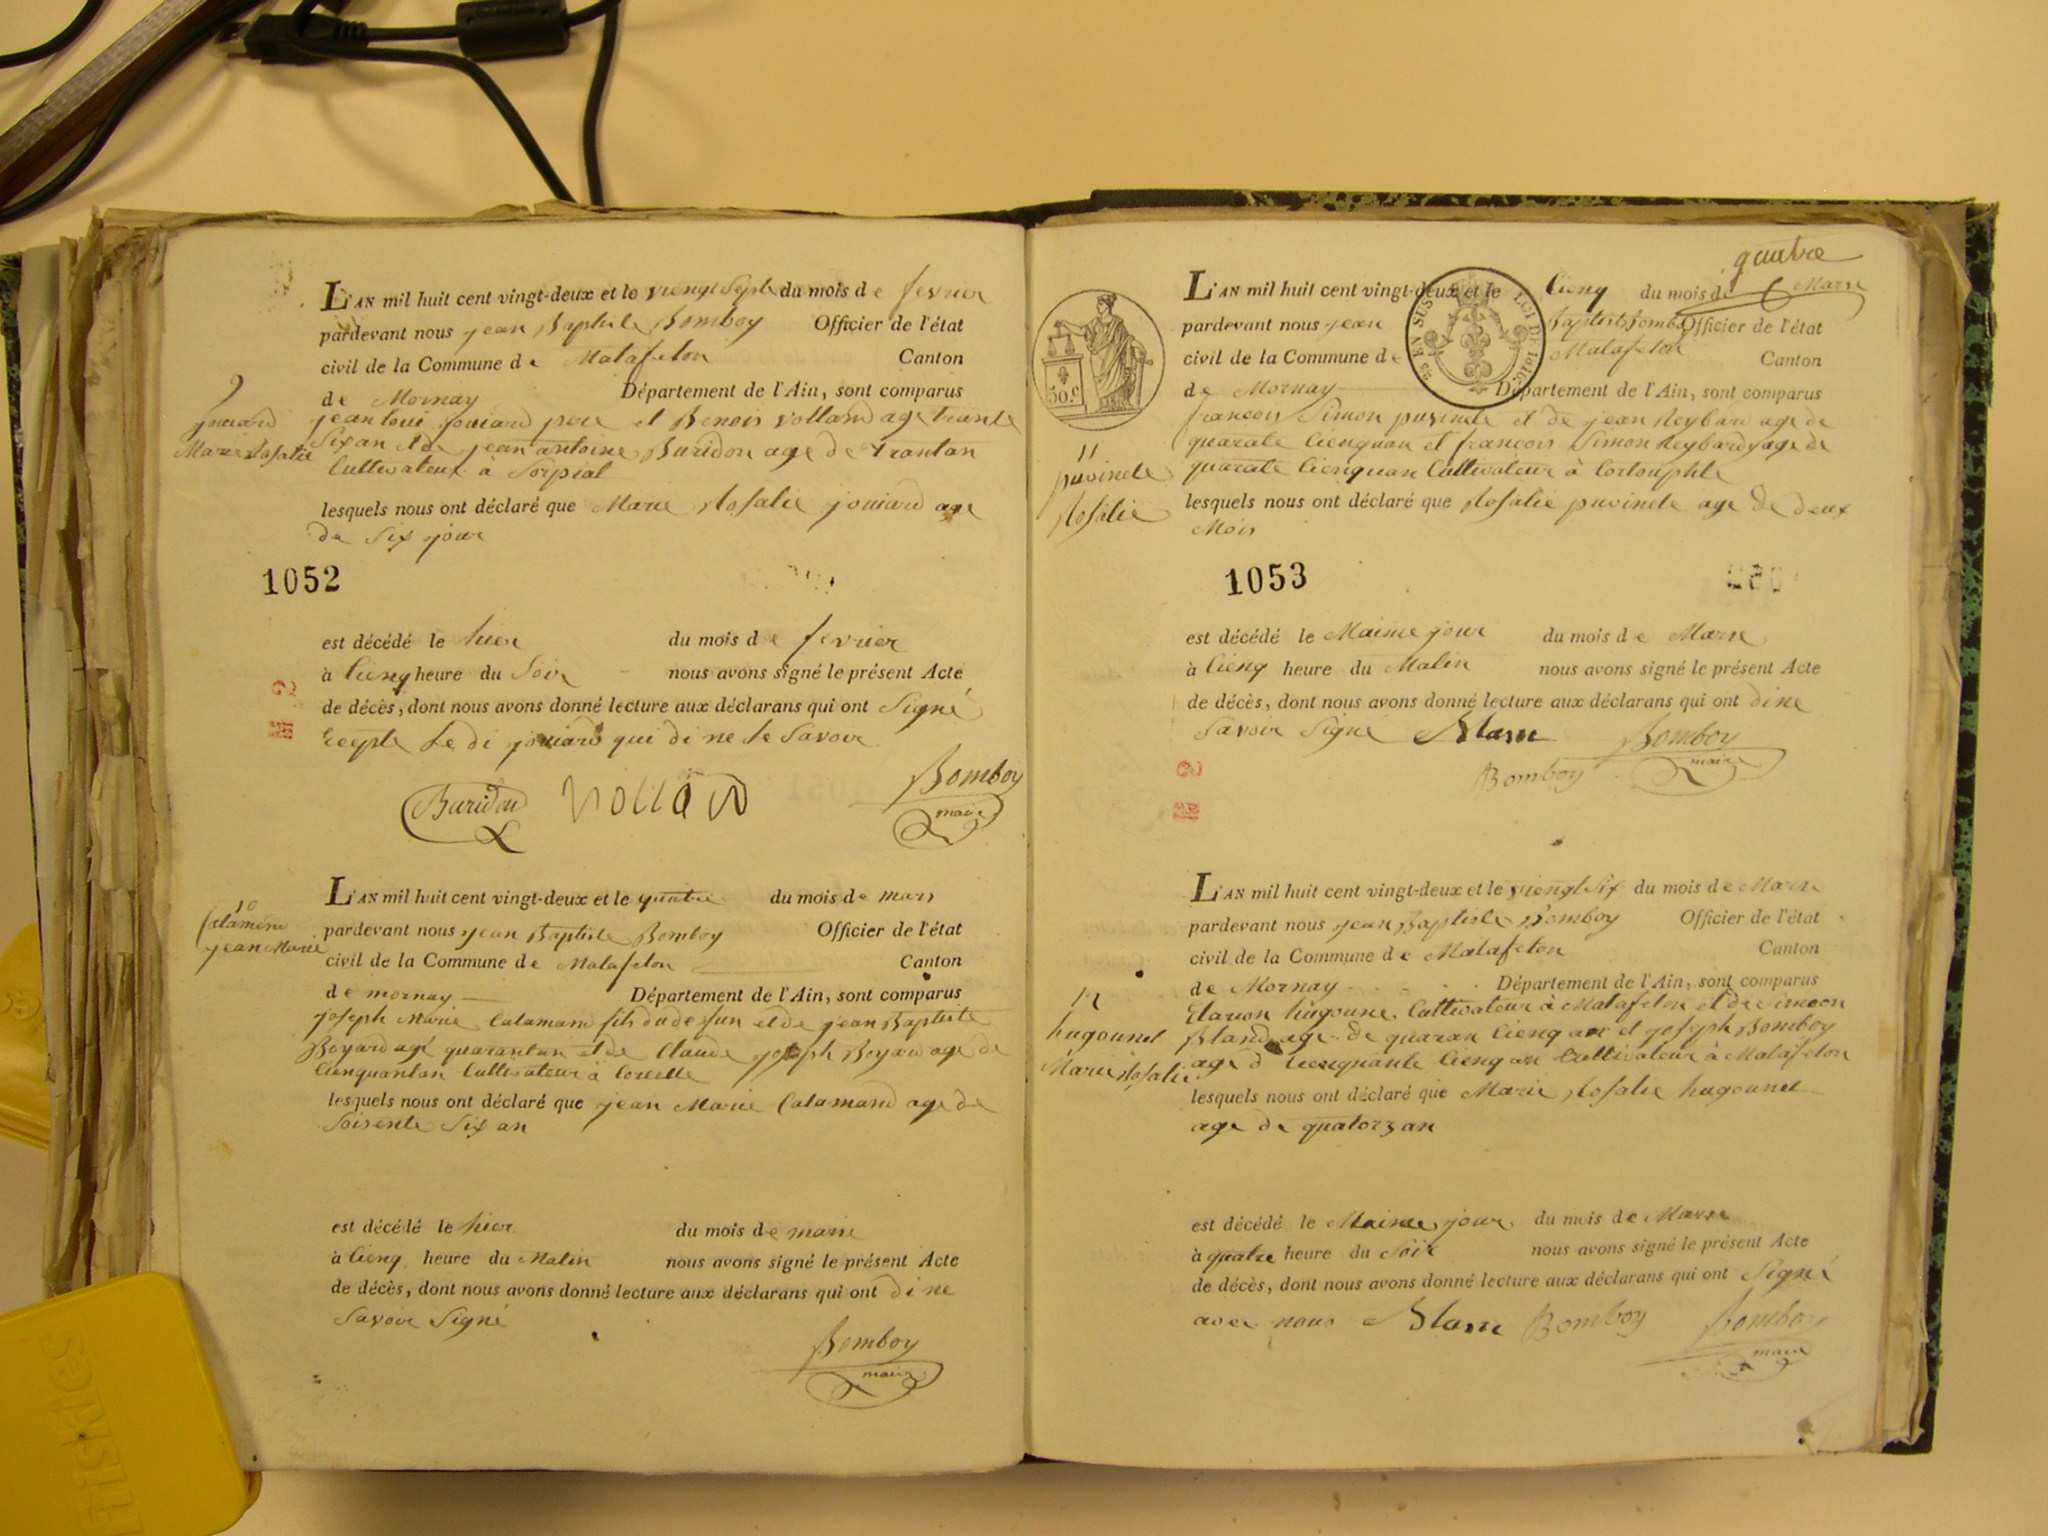 9
jouiard
Marie Rosalie
L'AN mil huit cent vingt-deux et le viengt Septe du mois de fevrier
pardevant nous jean Baptiste Bomboy Officier de l'état
civil de la Commune de Matafelon Canton
de Mornay Département de l'Ain, sont comparus
jean loui jouiard pere et Benois volland age trante
Six an et de jean antoine Buridon age de trantan
Cultivateur a Sorpiat
lesquels nous ont déclaré que Marie Rosalie jouiard age
de Six jour
1052
est décédé le hier du mois de fevrier
à Cienq heure du Soir nous avons signé le présent Acte
de décès, dont nous avons donné lecture aux déclarans qui ont Signé
Ledi jouiard qui di ne le Savoir
Buridon Volland Bomboy
maire
10
jean Marie
L'AN mil huit cent vingt-deux et le quatre du mois de mars
pardevant nous jean Baptiste Bomboy Officier de l'état
civil de la Commune de Matafelon Canton
de mornay Département de l'Ain, sont comparus
joseph Marie Calamand fils du defun et de jean Baptiste
Boyard agé quarantan et de Claude joseph Boyard age de
Cienquantan Cultivateur à
lesquels nous ont déclaré que jean Marie Calamand age de
Soisente Six an
est décédé le hier du mois de mars
à Cienq heure du Matin nous avons signé le présent Acte
de décès, dont nous avons donné lecture aux déclarans qui ont di ne
Savoir Signé
Bomboy
maire
quatre
11
puvinele
Rosalie
50 c
EN SUS LOI DE 1816
L'AN mil huit cent vingt-deux et le Cienq du mois de Mars
pardevant nous jean Baptiste Bomboy Officier de l'état
civil de la Commune de Matafelon Canton
de Mornay Département de l'Ain, sont comparus
francois Simon puvinele et de jean Reybard age de
quarate Cienquan et francois Simon Reybard age de
quarate Cienquan Cultivateur à
lesquels nous ont déclaré que Rosalie puvinele age de deux
Mois
1053
est décédé le Maime jour du mois de Mars
à Cienq heure du Matin nous avons signé le présent Acte
de décès, dont nous avons donné lecture aux déclarans qui ont di ne
Savoir Signé Blanc Bomboy
Bomboy maire
12
hugounet
Marie Rosalie
L'AN mil huit cent vingt-deux et le viengt Six du mois de Mars
pardevant nous jean Baptiste Bomboy Officier de l'état
civil de la Commune de Matafelon Canton
de Mornay Département de l'Ain, sont comparus
Elarion hugoune Cultivateur à Matafelon et de Simeon
Bland age de quaran Cienq an et joseph Bomboy
age d Cienquante Cienq an Cultivateur à Matafelon
lesquels nous ont déclaré que Marie Rosalie hugounet
age de quatorz an
est décédé le Maime jour du mois de Mars
à quatre heure du Soir nous avons signé le présent Acte
de décès, dont nous avons donné lecture aux déclarans qui ont Signé
avec nous Blanc Bomboy Bomboy
maire